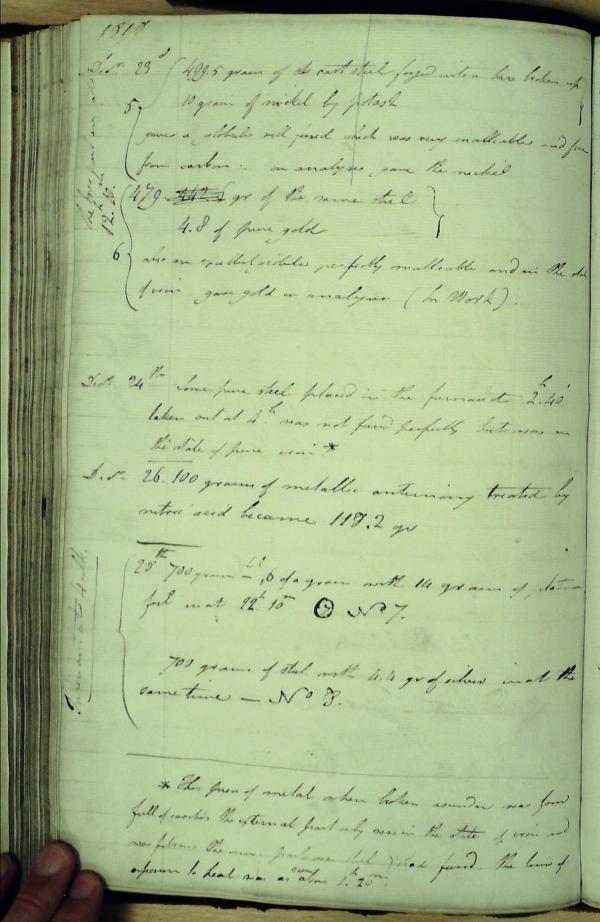 1818
Decr. 23d 499.5 grams of the cast steel forged into a bar broken up
10 gram of nickel by potash
5
gave a globule well fused which was very malleable and free
from carbon - on analyses gave the nickel
479 gr of the same steel
4.8 of pure gold
6
also an perfectly malleable and in the state
of iron gave gold on analyses (In Work).
Decr. 24th Some pure steel placed in the furnace at 2h.40'
taken out at 4h was not fused perfectly but was in
the state of pure iron *
Decr. 26. 100 grams of metallic antimony treated by
nitric acid became 118.2 gr
28th 700 grams - ,6 of a gram with 14 grams of
foil in at 12h 10m No 7.
700 grams of steel with 4.4 gr of silver in at the
same time — No 8.
* This piece of metal when broken asunder was found
full of cavities the external part only was in the state of iron and
was fibrous The inner parts were steel & had fused. The time of
exposure to heat was as above 1h.20m.